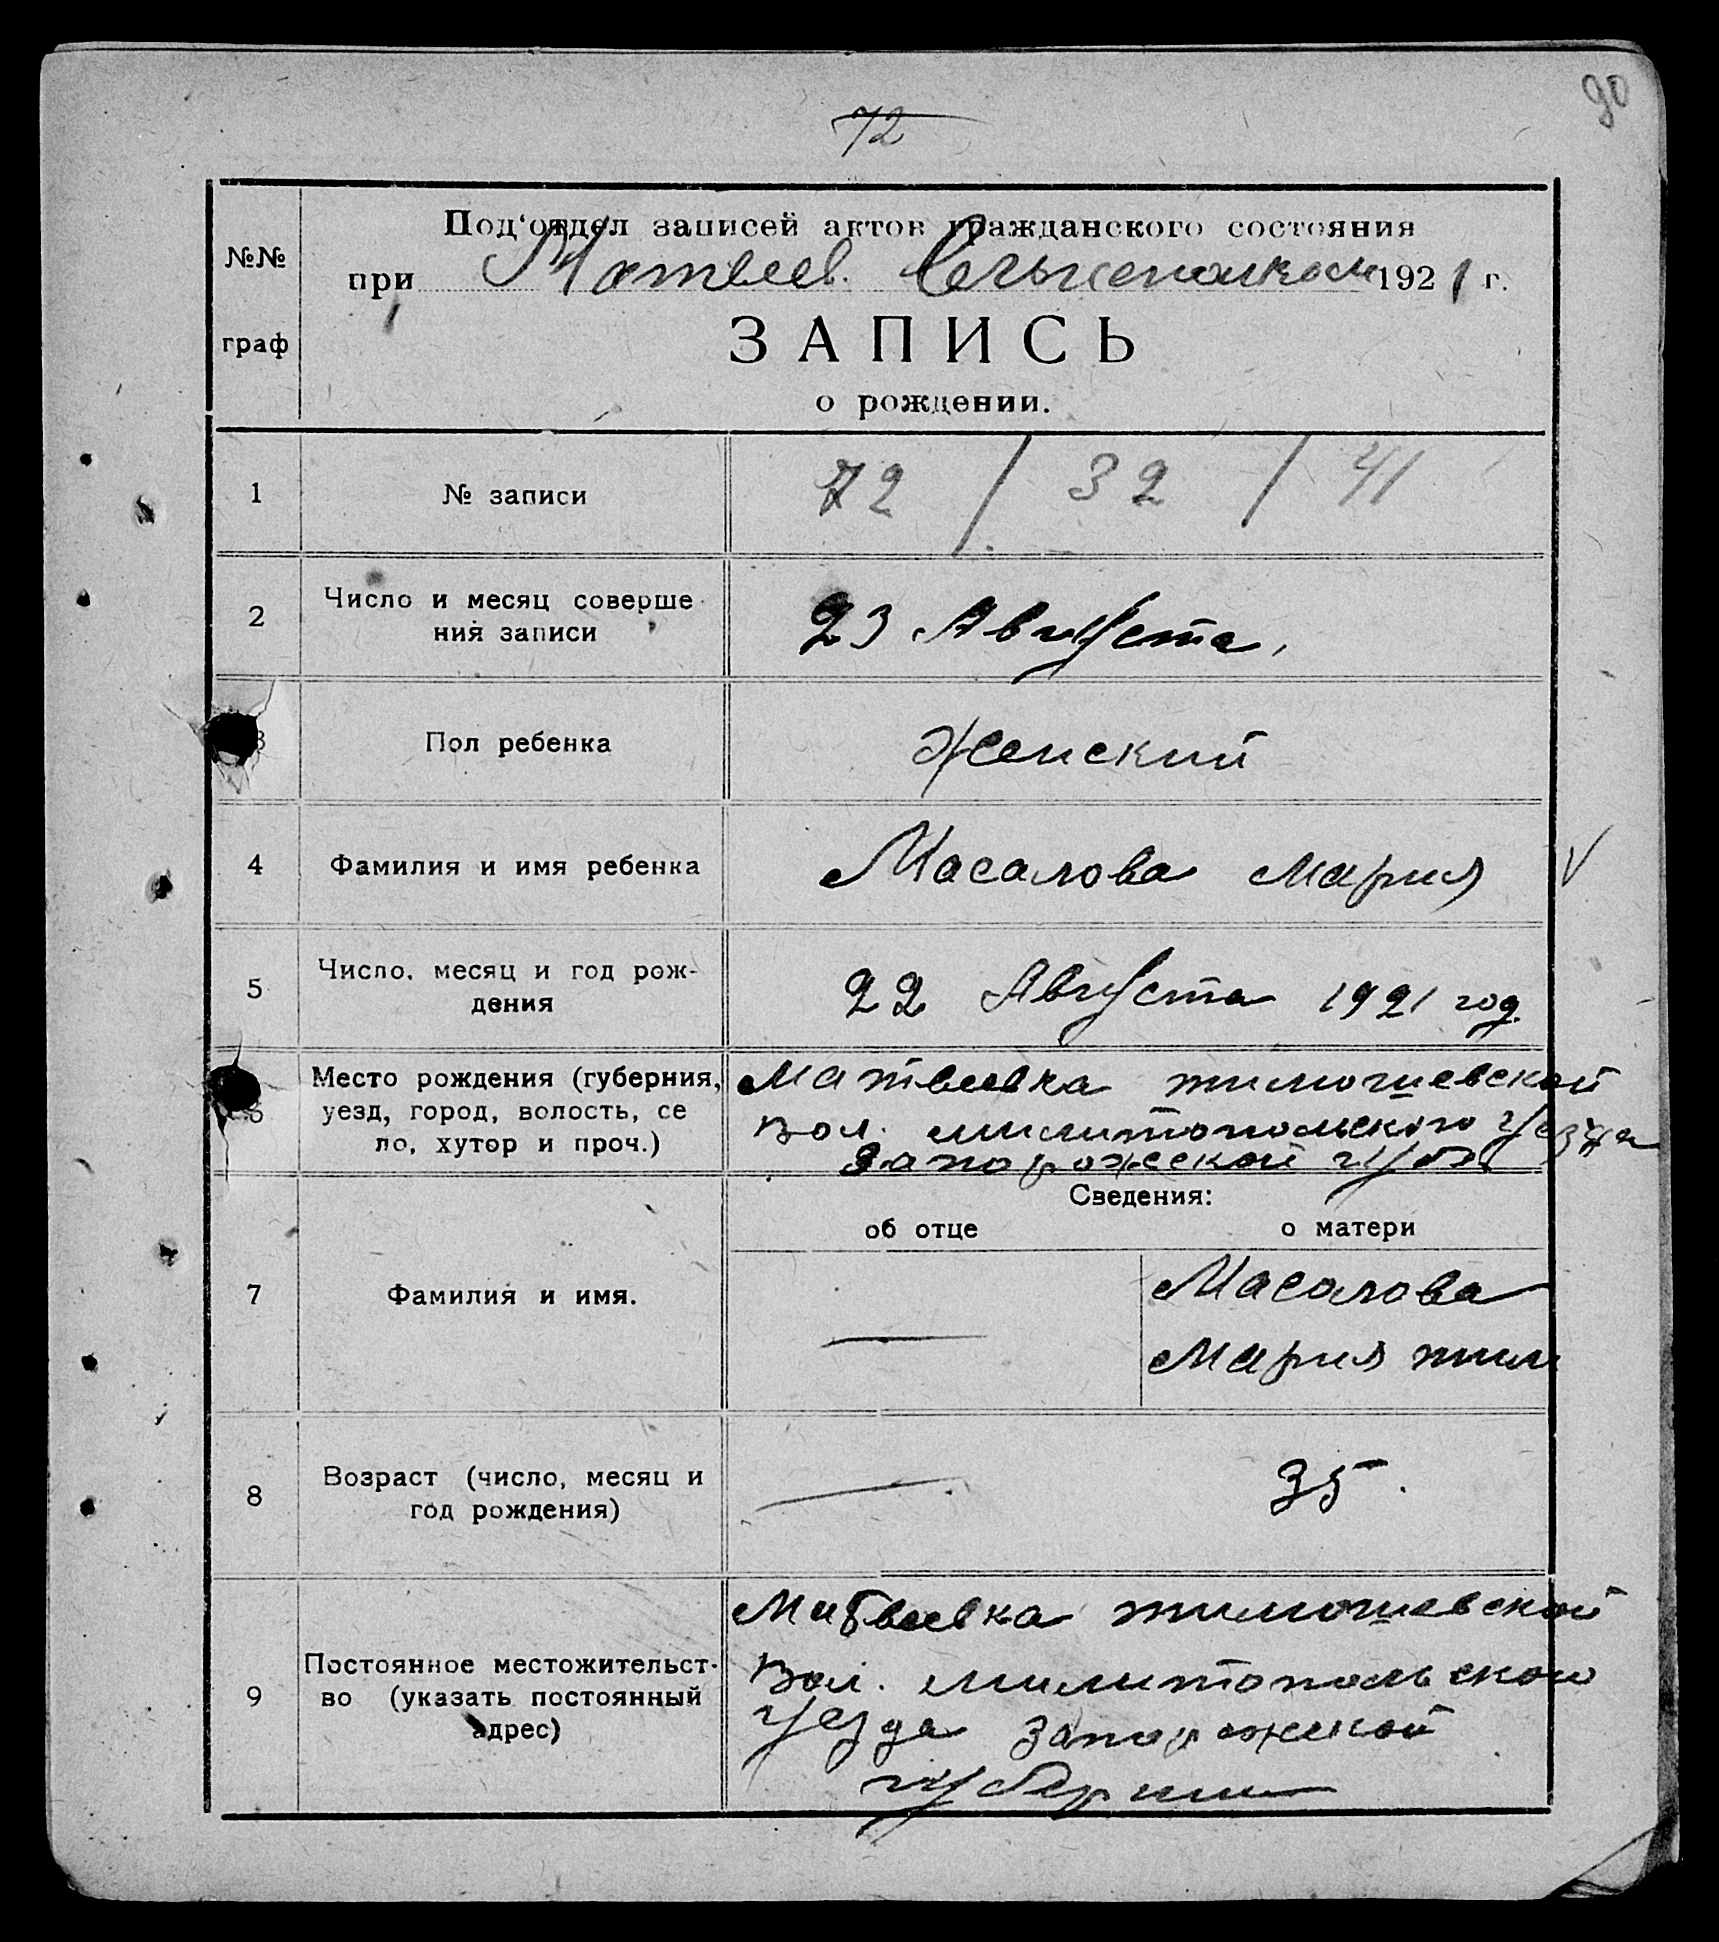 90
72
Под'отдел записей актов гражданского состояния
№№ граф
при Матвеев. 1921 г.
ЗАПИСЬ
о рождении.
1 № записи 72 / 32 / 41
2 Число и месяц соверше
ния записи 23 Августа,
3 Пол ребенка Женский
4 Фамилия и имя ребенка Масалова Мария V
5 Число, месяц и год рож-
дения 22 Августа 1921 год.
6 Место рождения (губерния,
уезд, город, волость, се
ло, хутор и проч.)
Матвеевка тимошевской
вол. милитопольского уезда
Запорожской губ
Сведения:
об отце о матери
7 Фамилия и имя. — Масалова
Мария тим
8 Возраст (число, месяц и
год рождения) — 35.
9 Постоянное местожительст-
во (указать постоянный
адрес)
Матвеевка тимошевской
вол. милитопольского
уезда запорожской
губернии